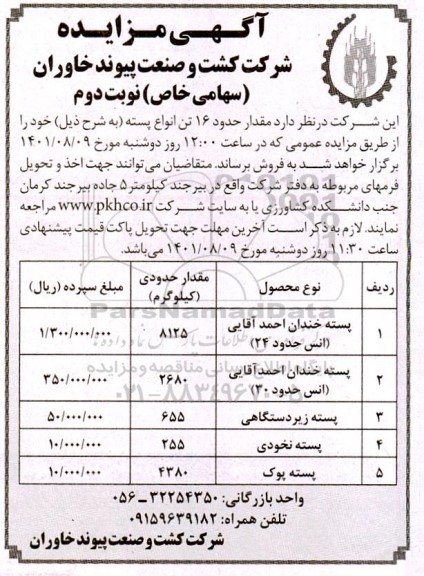 آگهی مزایده
شرکت کشت و صنعت پیوند خاوران
(سهامی خاص) نوبت دوم
این شرکت درنظر دارد مقدار حدود ۱۶ تن انواع پسته (به شرح ذیل) خود را
از طریق مزایده عمومی که در ساعت ۱۲:۰۰ روز دوشنبه مورخ ۱۴۰۱/۰۸/۰۹
برگزار خواهد شد به فروش برساند. متقاضیان می‌توانند جهت اخذ و تحویل
فرمهای مربوطه به دفتر شرکت واقع در بیرجند کیلومتر ۵ جاده بیرجند کرمان
جنب دانشکده کشاورزی یا به سایت شرکت www.pkhco.ir مراجعه
نمایند. لازم به ذکر است آخرین مهلت جهت تحویل پاکت قیمت پیشنهادی
ساعت ۱۱:۳۰ روز دوشنبه مورخ ۱۴۰۱/۰۸/۰۹ می‌باشد.
ردیف نوع محصول مقدار حدودی (کیلوگرم) مبلغ سپرده (ریال)
۱ پسته خندان احمد آقایی (انس حدود ۲۴) ۸۱۲۵ ۱/۳۰۰/۰۰۰/۰۰۰
۲ پسته خندان احمد آقایی (انس حدود ۳۰) ۲۶۸۰ ۳۵۰/۰۰۰/۰۰۰
۳ پسته زیر دستگاهی ۶۵۵ ۵۰/۰۰۰/۰۰۰
۴ پسته نخودی ۲۵۵ ۱۰/۰۰۰/۰۰۰
۵ پسته پوک ۴۳۸۰ ۱۰/۰۰۰/۰۰۰
ParsNamadData
۰۲۱-۸۸۳۴۹۶۷۰-۵
واحد بازرگانی: ۳۲۲۵۴۳۵۰ - ۰۵۶
تلفن همراه: ۰۹۱۵۹۶۳۹۱۸۲
شرکت کشت و صنعت پیوند خاوران